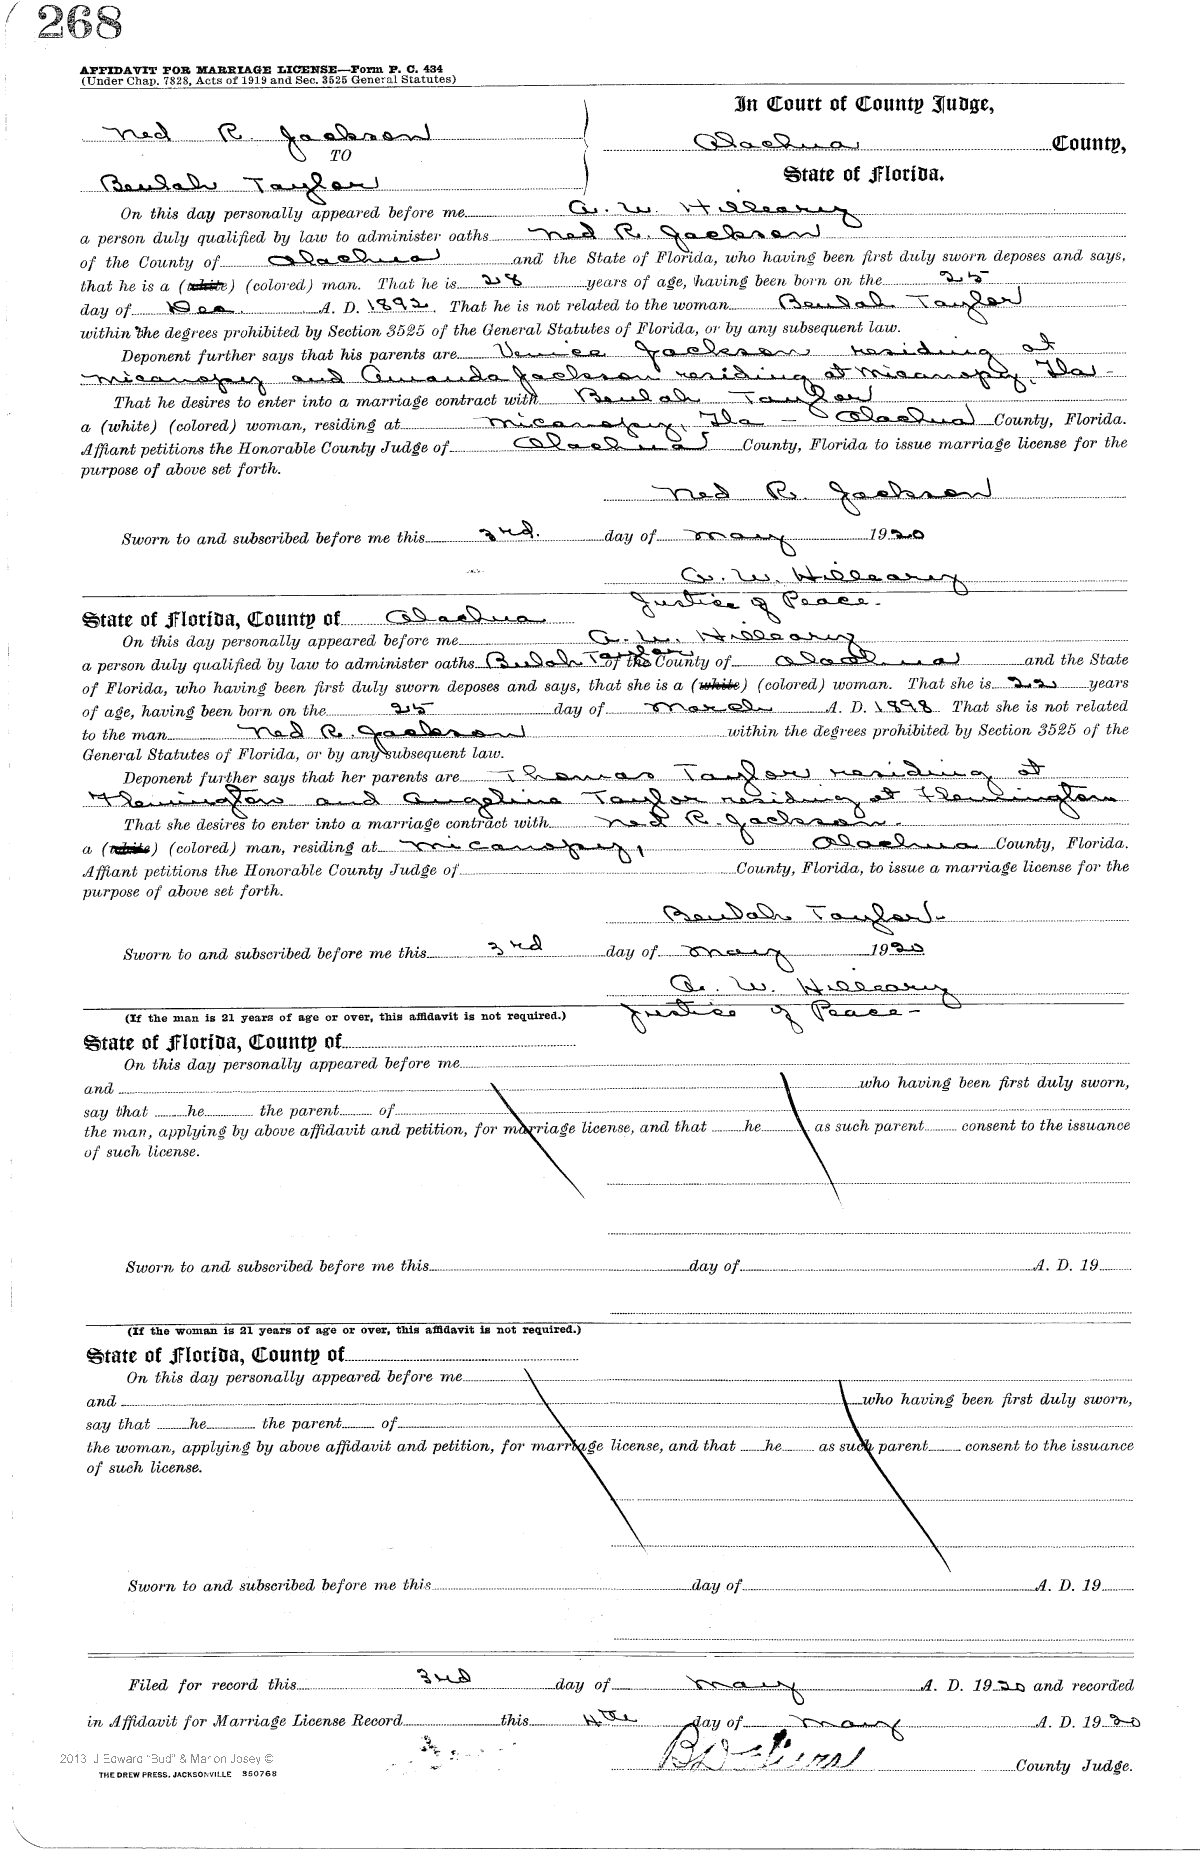 268
AFFIDAVIT FOR MARRIAGE LICENSE—Form P. C. 434
(Under Chap. 7828, Acts of 1919 and Sec. 3525 General Statutes)
In Court of County Judge,
Ned R. Jackson
Alachua County,
TO
State of Florida.
Beulah Taylor
On this day personally appeared before me A. W. Hilleary
a person duly qualified by law to administer oaths Ned R. Jackson
of the County of Alachua and the State of Florida, who having been first duly sworn deposes and says,
that he is a (white) (colored) man. That he is 28 years of age, having been born on the 25
day of Dec. A. D. 1892. That he is not related to the woman Beulah Taylor
within the degrees prohibited by Section 3525 of the General Statutes of Florida, or by any subsequent law.
Deponent further says that his parents are Venice Jackson residing at
Micanopy and Amanda Jackson residing at Micanopy, Fla -
That he desires to enter into a marriage contract with Beulah Taylor
a (white) (colored) woman, residing at Micanopy, Fla - Alachua County, Florida.
Affiant petitions the Honorable County Judge of Alachua County, Florida to issue marriage license for the
purpose of above set forth.
Ned R. Jackson
Sworn to and subscribed before me this 3rd. day of May 1920
A. W. Hilleary
Justice of Peace -
State of Florida, County of Alachua
On this day personally appeared before me A. W. Hilleary
a person duly qualified by law to administer oaths Beulah Taylor of the County of Alachua and the State
of Florida, who having been first duly sworn deposes and says, that she is a (white) (colored) woman. That she is 22 years
of age, having been born on the 25 day of March A. D. 1898 That she is not related
to the man Ned R. Jackson within the degrees prohibited by Section 3525 of the
General Statutes of Florida, or by any subsequent law.
Deponent further says that her parents are Thomas Taylor residing at
Flemington and Angeline Taylor residing at Flemington
That she desires to enter into a marriage contract with Ned R. Jackson.
a (white) (colored) man, residing at Micanopy, Alachua County, Florida.
Affiant petitions the Honorable County Judge of County, Florida, to issue a marriage license for the
purpose of above set forth.
Beulah Taylor -
Sworn to and subscribed before me this 3rd day of May 1920
A. W. Hilleary
Justice of Peace -
(If the man is 21 years of age or over, this affidavit is not required.)
State of Florida, County of
On this day personally appeared before me
and who having been first duly sworn,
say that he the parent of
the man, applying by above affidavit and petition, for marriage license, and that he as such parent consent to the issuance
of such license.
Sworn to and subscribed before me this day of A. D. 19
(If the woman is 21 years of age or over, this affidavit is not required.)
State of Florida, County of
On this day personally appeared before me
and who having been first duly sworn,
say that he the parent of
the woman, applying by above affidavit and petition, for marriage license, and that he as such parent consent to the issuance
of such license.
Sworn to and subscribed before me this day of A. D. 19
Filed for record this 3rd day of May A. D. 1920 and recorded
in Affidavit for Marriage License Record this 4th day of May A. D. 1920
County Judge.
2013 J Edward "Bud" & Marion Josey ©
THE DREW PRESS, JACKSONVILLE 350768